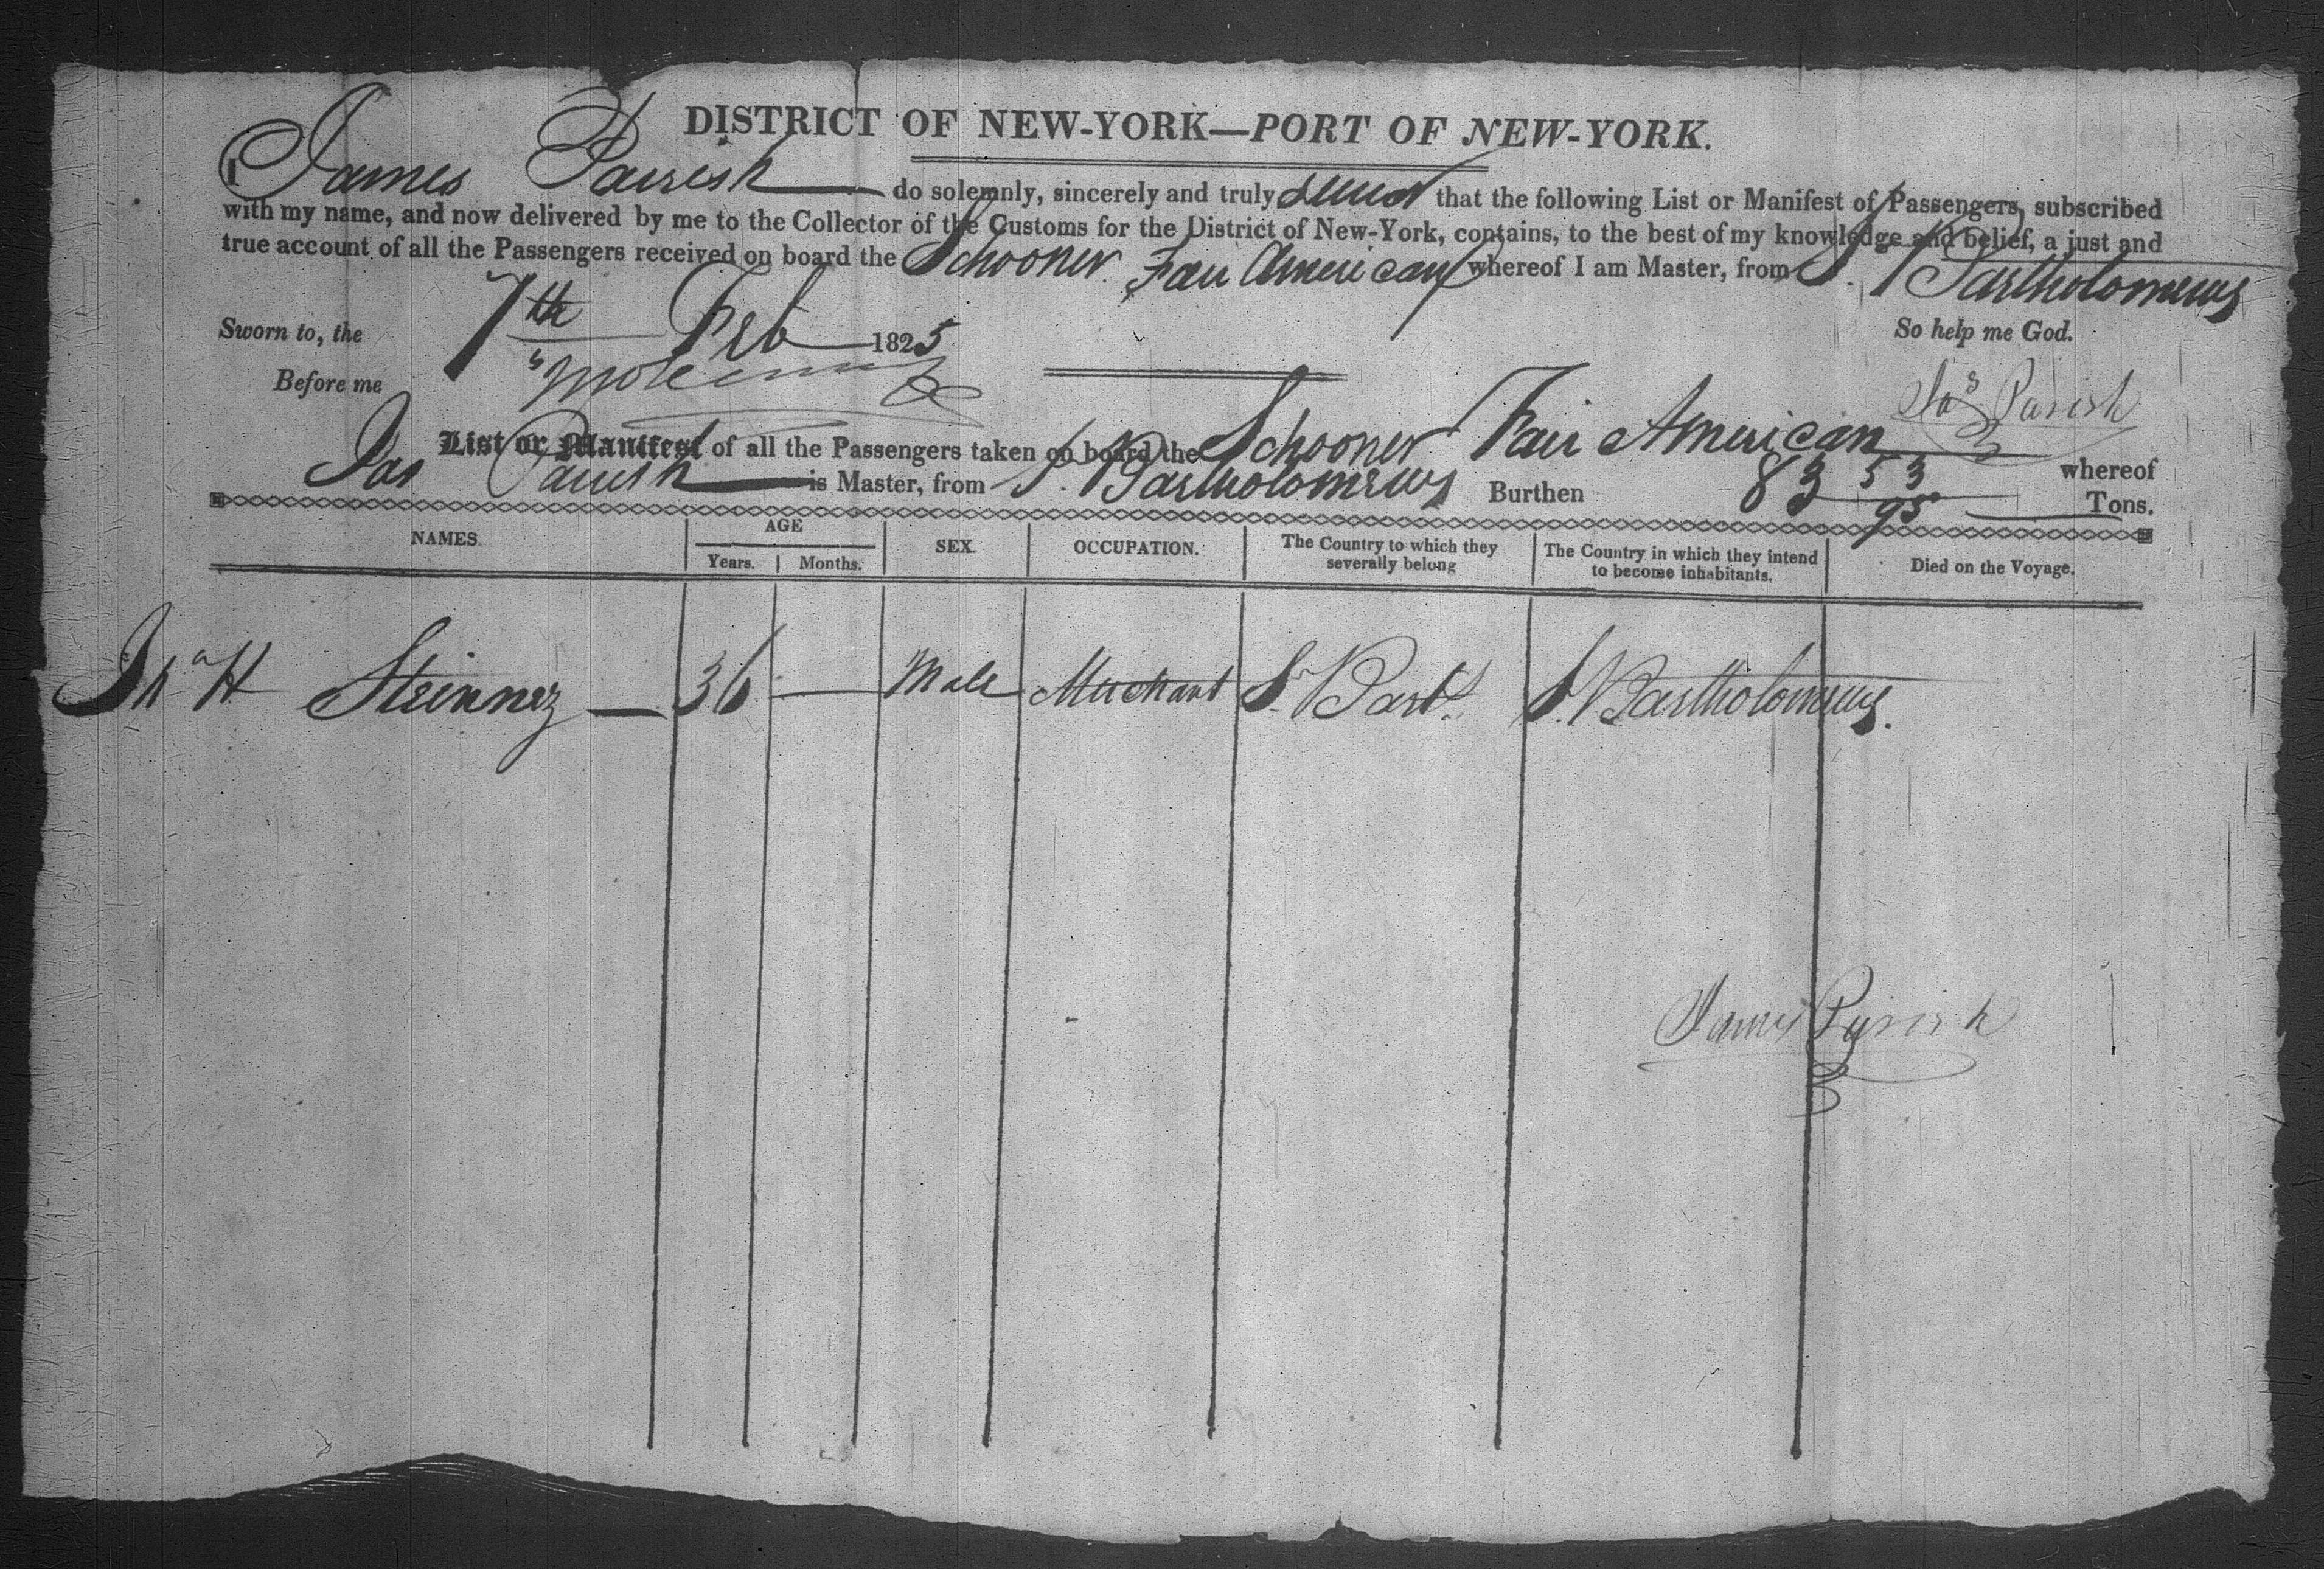 DISTRICT OF NEW-YORK—PORT OF NEW-YORK.
I James Parrish do solemnly, sincerely and truly swear that the following List or Manifest of Passengers, subscribed
with my name, and now delivered by me to the Collector of the Customs for the District of New-York, contains, to the best of my knowledge and belief, a just and
true account of all the Passengers received on board the Schooner Fair American whereof I am Master, from St Bartholomews
Sworn to, the 7th Feb 1825 So help me God.
Before me Jas Parish
List or Manifest of all the Passengers taken on board the Schooner Fair American whereof
Jas Parrish is Master, from St Bartholomews Burthen 83 53/95 Tons.
NAMES. AGE SEX. OCCUPATION. The Country to which they severally belong The Country in which they intend to become inhabitants. Died on the Voyage.
Years. Months.
Jno H 36 — Male Merchant St Barts St Bartholomews.
James Parish